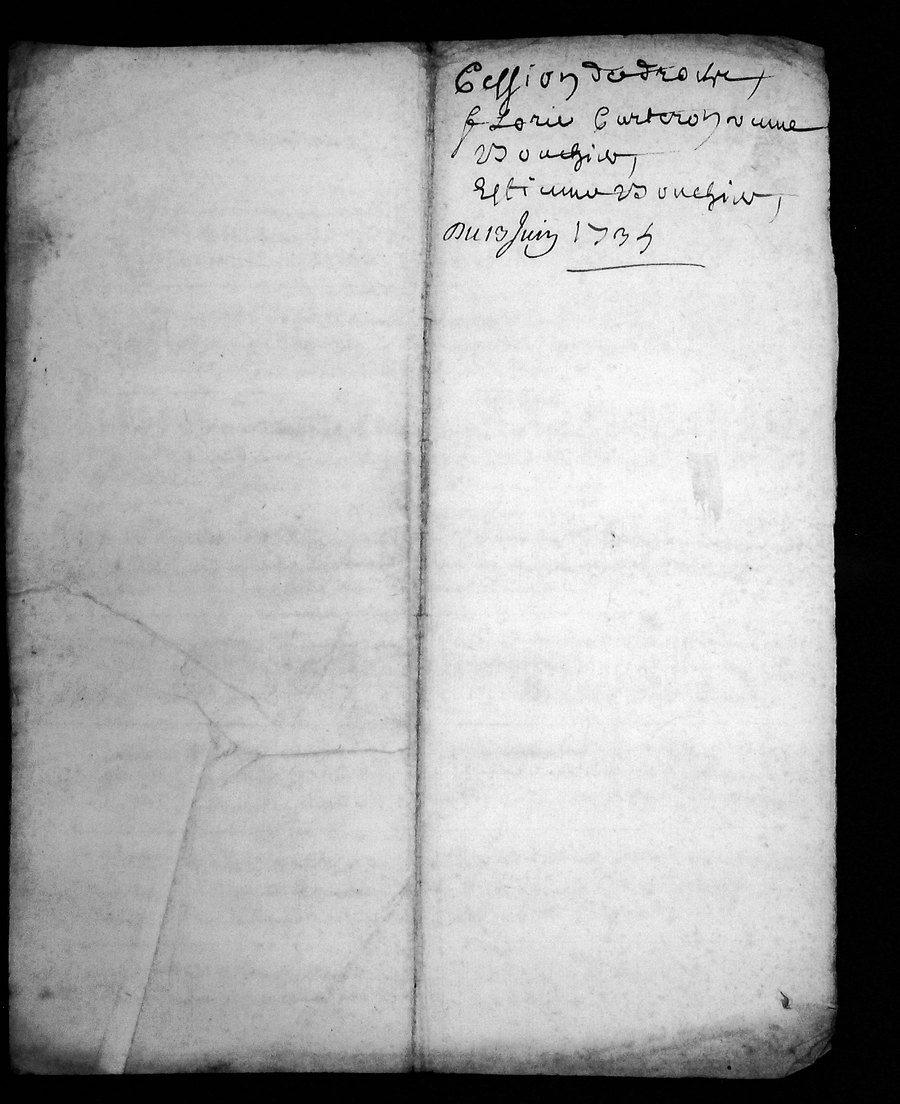 Cession de droits,
florie Carteron veuve
Bouchie,
Estienne Bouchie,
Du 13 Juin 1735